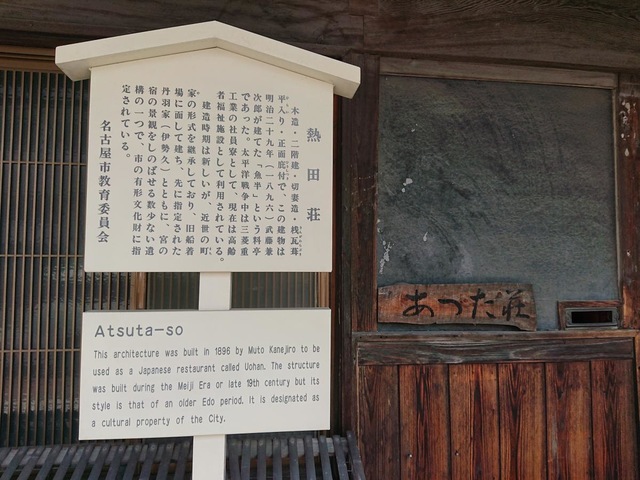 熱田荘
木造・二階建・切妻造・桟瓦葺
平入り・正面庇付で、この建物は
明治二十九年(一八九六)武藤兼
次郎が建てた「魚半」という料亭
であった。太平洋戦争中は三菱重
工業の社員寮として、現在は高齢
者福祉施設として利用されている。
建造時期は新しいが、近世の町
家の形式を継承しており、旧船着
場に面して建ち、先に指定された
丹羽家(伊勢久)とともに、宮の
宿の景観をしのばせる数少ない遺
構の一つで、市の有形文化財に指
定されている。
名古屋市教育委員会
Atsuta-so
This architecture was built in 1896 by Muto Kanejiro to be
used as a Japanese restaurant called Uohan. The structure
was built during the Meiji Era or late 19th century but its
style is that of an older Edo period. It is designated as
a cultural property of the City.
あつた荘